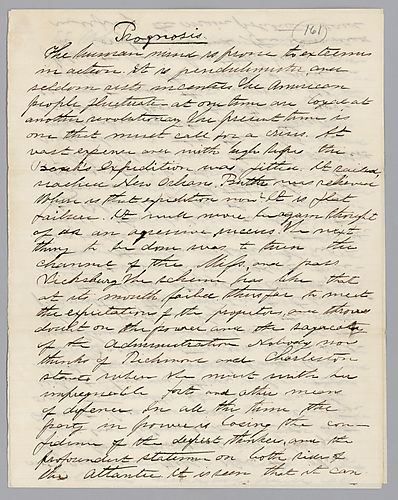 Prognosis. (161)
The human mind is prone to extremes
in action. It is pendulumistic and
seldom rests in centers. The American
people fluctuate at one time are loyal at
another revolutionary. The present time is
one that must call for a crisis. At
vast expense and with high hopes the
Bank's Expedition was fitted. It sailed,
reached New Orleans, Butler was relieved
Where is that expedition now? It is flat
failure. It will never be again thought
of as an agressive success. The next
thing to be done was to turn the
channel of the Miss, and pass
Vicksburg. The scheme has like that
at its mouth failed thus far to meet
the expectation of the projectors, and throws
doubt on the power and the sagacity
of the Administration. Nobody now
thinks of Richmond and Charleston
stands where she must with her
impregnable forts and other means
of defence. In all the time the
party in power is losing the con-
fidence of the deepest thinkers, and the
profoundest statesmen on both sides of
the Atlantic. It is seen that it can